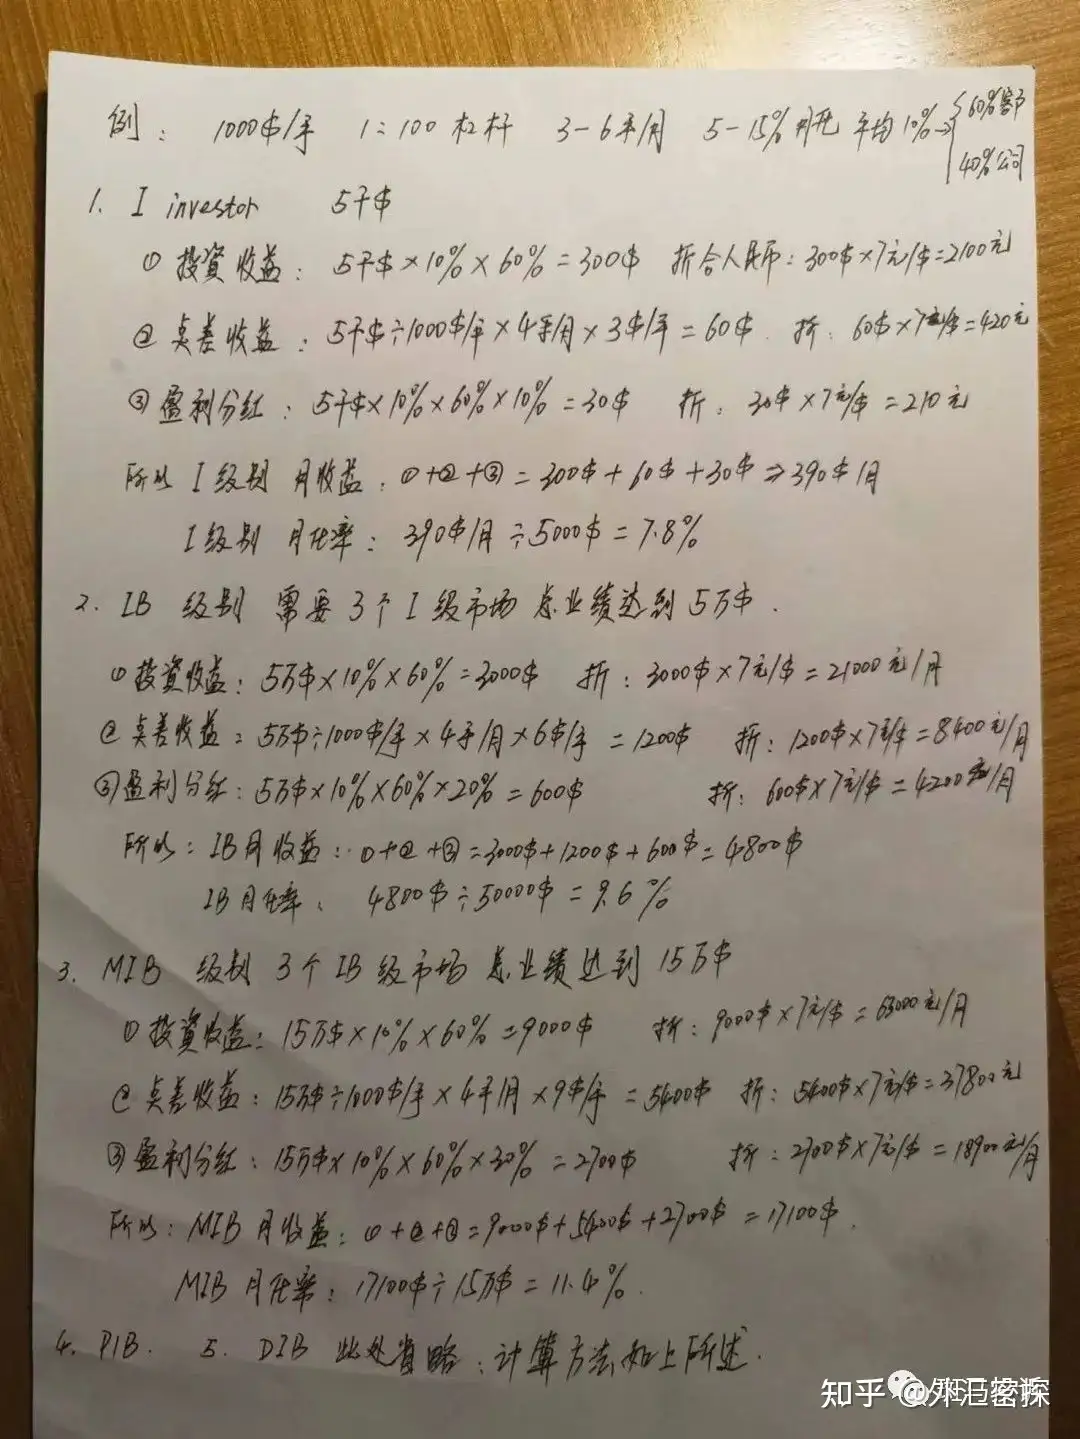 例: 1000$/手 1:100 杠杆 3-6手/月 5-15%月化 平均10%→{60%客户
40%公司
1. I investor 5千$
① 投資收益: 5千$×10%×60%=300$ 折合人民币:300$×7元/$=2100元
② 点差收益: 5千$÷1000$/手×4手/月×3$/手=60$. 折: 60$×7元/$=420元
③ 盈利分红: 5千$×10%×60%×10%=30$ 折: 30$×7元/$=210元
所以 I级别 月收益: ①+②+③=300$+60$+30$⇒390$/月
I级别 月化率: 390$/月÷5000$=7.8%
2. IB 级别 需要3个I级市场 总业绩达到5万$.
① 投資收益: 5万$×10%×60%=3000$ 折: 3000$×7元/$=21000元/月
② 点差收益: 5万$÷1000$/手×4手/月×6$/手=1200$ 折: 1200$×7元/$=8400元/月
③ 盈利分红: 5万$×10%×60%×20%=600$ 折: 600$×7元/$=4200元/月
所以: IB月收益: ①+②+③=3000$+1200$+600$=4800$
IB月化率: 4800$÷50000$=9.6%
3. MIB 级别 3个IB级市场 总业绩达到15万$
① 投資收益: 15万$×10%×60%=9000$ 折: 9000$×7元/$=63000元/月
② 点差收益: 15万$÷1000$/手×4手/月×9$/手=5400$ 折: 5400$×7元/$=37800元
③ 盈利分红: 15万$×10%×60%×30%=2700$ 折: 2700$×7元/$=18900元/月
所以: MIB月收益: ①+②+③=9000$+5400$+2700$=17100$.
MIB月化率: 17100$÷15万$=11.4%.
4. PIB. 5. DIB 此处省略:计算方法如上所述.
知乎 @外汇密探